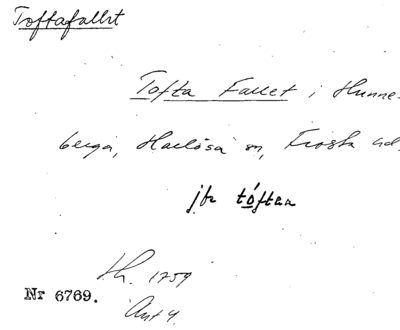 Toftafallet
Tofta Fallet i Hunne-
berga, Harlösa sn, Frosta hd,
jfr tóftaa
Lh. 1759
Nr 6769.
Ant 4.